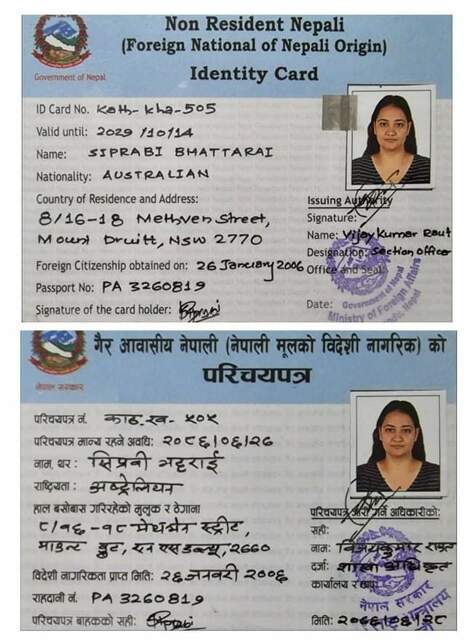 Non Resident Nepali
(Foreign National of Nepali Origin)
Government of Nepal
Identity Card
ID Card No. Kath-kha-505
Valid until: 2029/10/14
Name: SIPRABI BHATTARAI
Nationality: AUSTRALIAN
Country of Residence and Address:
8/16-18 Methven Street,
Mount Druitt, NSW 2770
Issuing Authority
Signature:
Name: Vijay Kumar Raut
Designation: Section officer
Office and Seal:
Foreign Citizenship obtained on: 26 January 2006
Passport No: PA 3260819
Signature of the card holder:
Date:
Government of Nepal
Ministry of Foreign Affairs
गैर आवासीय नेपाली (नेपाली मूलको विदेशी नागरिक) को
नेपाल सरकार
परिचयपत्र
परिचयपत्र नं. काठ.ख- ५०५
परिचयपत्र मान्य रहने अवधि: २०८६/०६/२८
नाम, थर: सिप्रबी भट्टराई
राष्ट्रियता: अष्ट्रेलियन
हाल बसोबास गरिरहेको मुलुक र ठेगाना
८/१६-१८ मेथभेन स्ट्रीट,
माउन्ट ड्रुट, एन एस डब्ल्यू, २७७०
परिचयपत्र जारी गर्ने अधिकारीको:
सही:
नाम: विजय कुमार राउत
दर्जा: शाखा अधिकृत
कार्यालय र छाप:
विदेशी नागरिकता प्राप्त मिति: २६ जनवरी २००६
राहदानी नं. PA 3260819
परिचयपत्र बाहकको सही:
नेपाल सरकार
मिति: